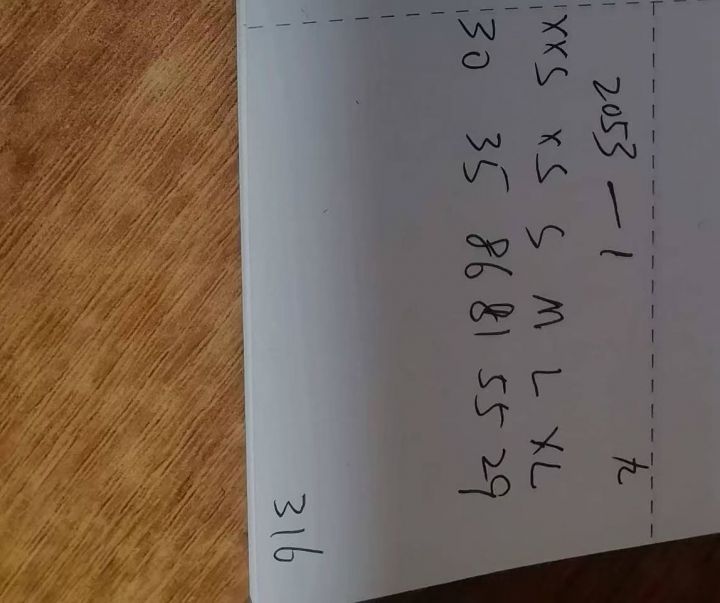 2053 — 1
XXS XS S M L XL
30 35 86 81 55 29
316